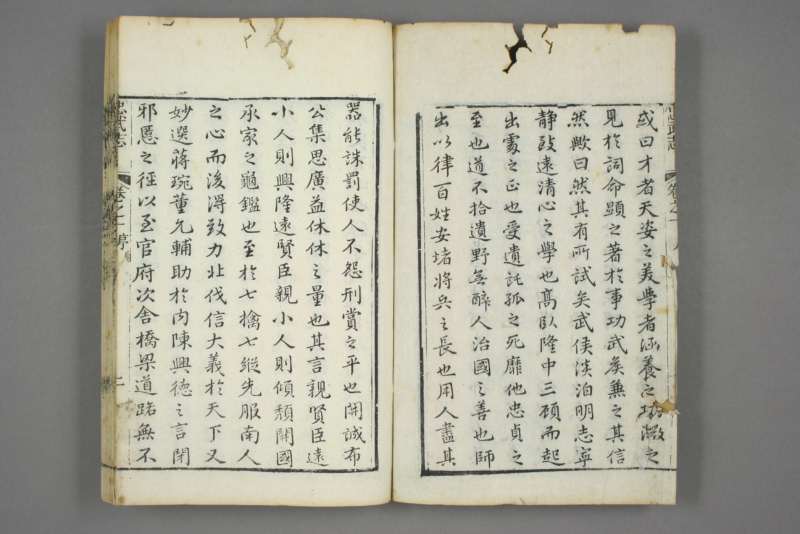 或曰才者天姿之美學者涵養之功微之
見於詞命顯之著於事功武矦兼之其信
然歟曰然其有所試矣武侯淡泊明志寧
靜致遠清心之學也髙臥隆中三顧而起
出處之正也受遺託孤之死靡他忠貞之
至也道不拾遺野無醉人治國之善也師
出以律百姓安堵將兵之長也用人盡其
器能誅罰使人不怨刑賞之平也開誠布
公集思廣益休休之量也其言親賢臣遠
小人則興隆遠賢臣親小人則傾頹開國
承家之龜鑑也至於七擒七縱先服南人
之心而後得致力北伐信大義於天下又
妙選蔣琬董允輔助於內陳興德之言閉
邪慝之徑以至官府次舍橋梁道路無不
武志
卷之一
序
二